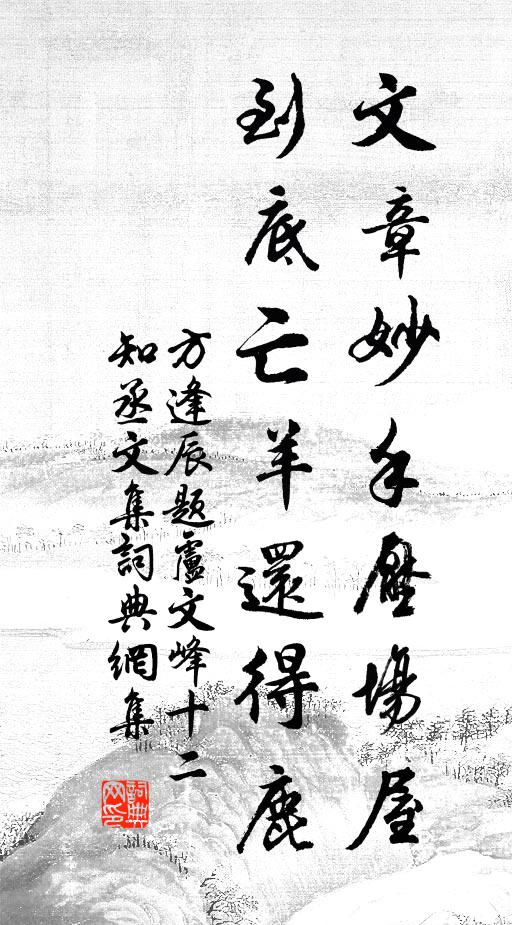 文章妙手壓場屋
到底亡羊還得鹿
方逢辰題盧文峰十二
知丞文集詞典網集
詞典网印